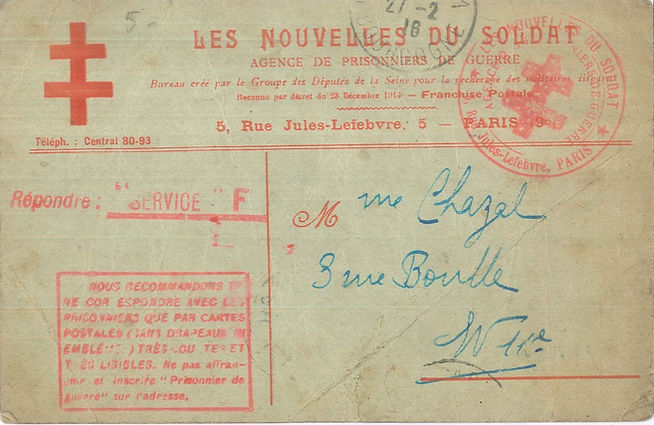 5-
27-2
16
LES NOUVELLES DU SOLDAT
AGENCE DE PRISONNIERS DE GUERRE
Bureau créé par le Groupe des Députés de la Seine pour la recherche des militaires disparus
Reconnu par décret du 23 Décembre 1914 – Franchise Postale
5, Rue Jules-Lefebvre, 5 – PARIS-9e
Téléph. : Central 80-93
NOUVELLES DU SOLDAT
DE GUERRE
Jules-Lefebvre, PARIS
Répondre : "SERVICE" F
Mme Chazal
3 rue Boulle
NOUS RECOMMANDONS
NE COR ESPONDRE AVEC LES
PRISONNIERS QUE PAR CARTES
POSTALES (SANS DRAPEAUX NI
EMBLÈME.) TRÈS OU TES ET
T ES LISIBLES. Ne pas affran-
chir et inscrire "Prisonnier de
guerre" sur l'adresse.